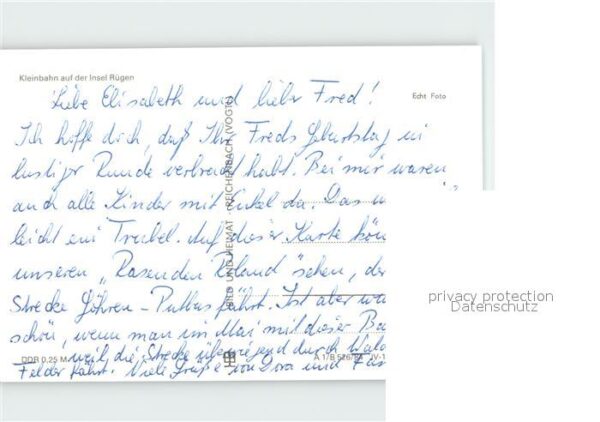 Kleinbahn auf der Insel Rügen
Echt Foto
Liebe Elisabeth und lieber Fred!
Ich hoffe doch, daß Ihr Freds Geburtstag in
lustiger Runde verbracht habt. Bei mir waren
auch alle Kinder mit Enkel da. Das w
leicht ein Trubel. Auf dieser Karte kön
unseren „Rasenden Roland" sehen, der
Strecke Göhren - Putbus fährt. Ist aber
schön, wenn man im Mai mit dieser Ba
weil die Strecke überwiegend durch Wald
Felder führt. Viele Grüße von Dora und
BILD UND HEIMAT · REICHENBACH (VOGTL)
DDR 0,25 M
A 1/B 526/84 IV-1
privacy protection
Datenschutz